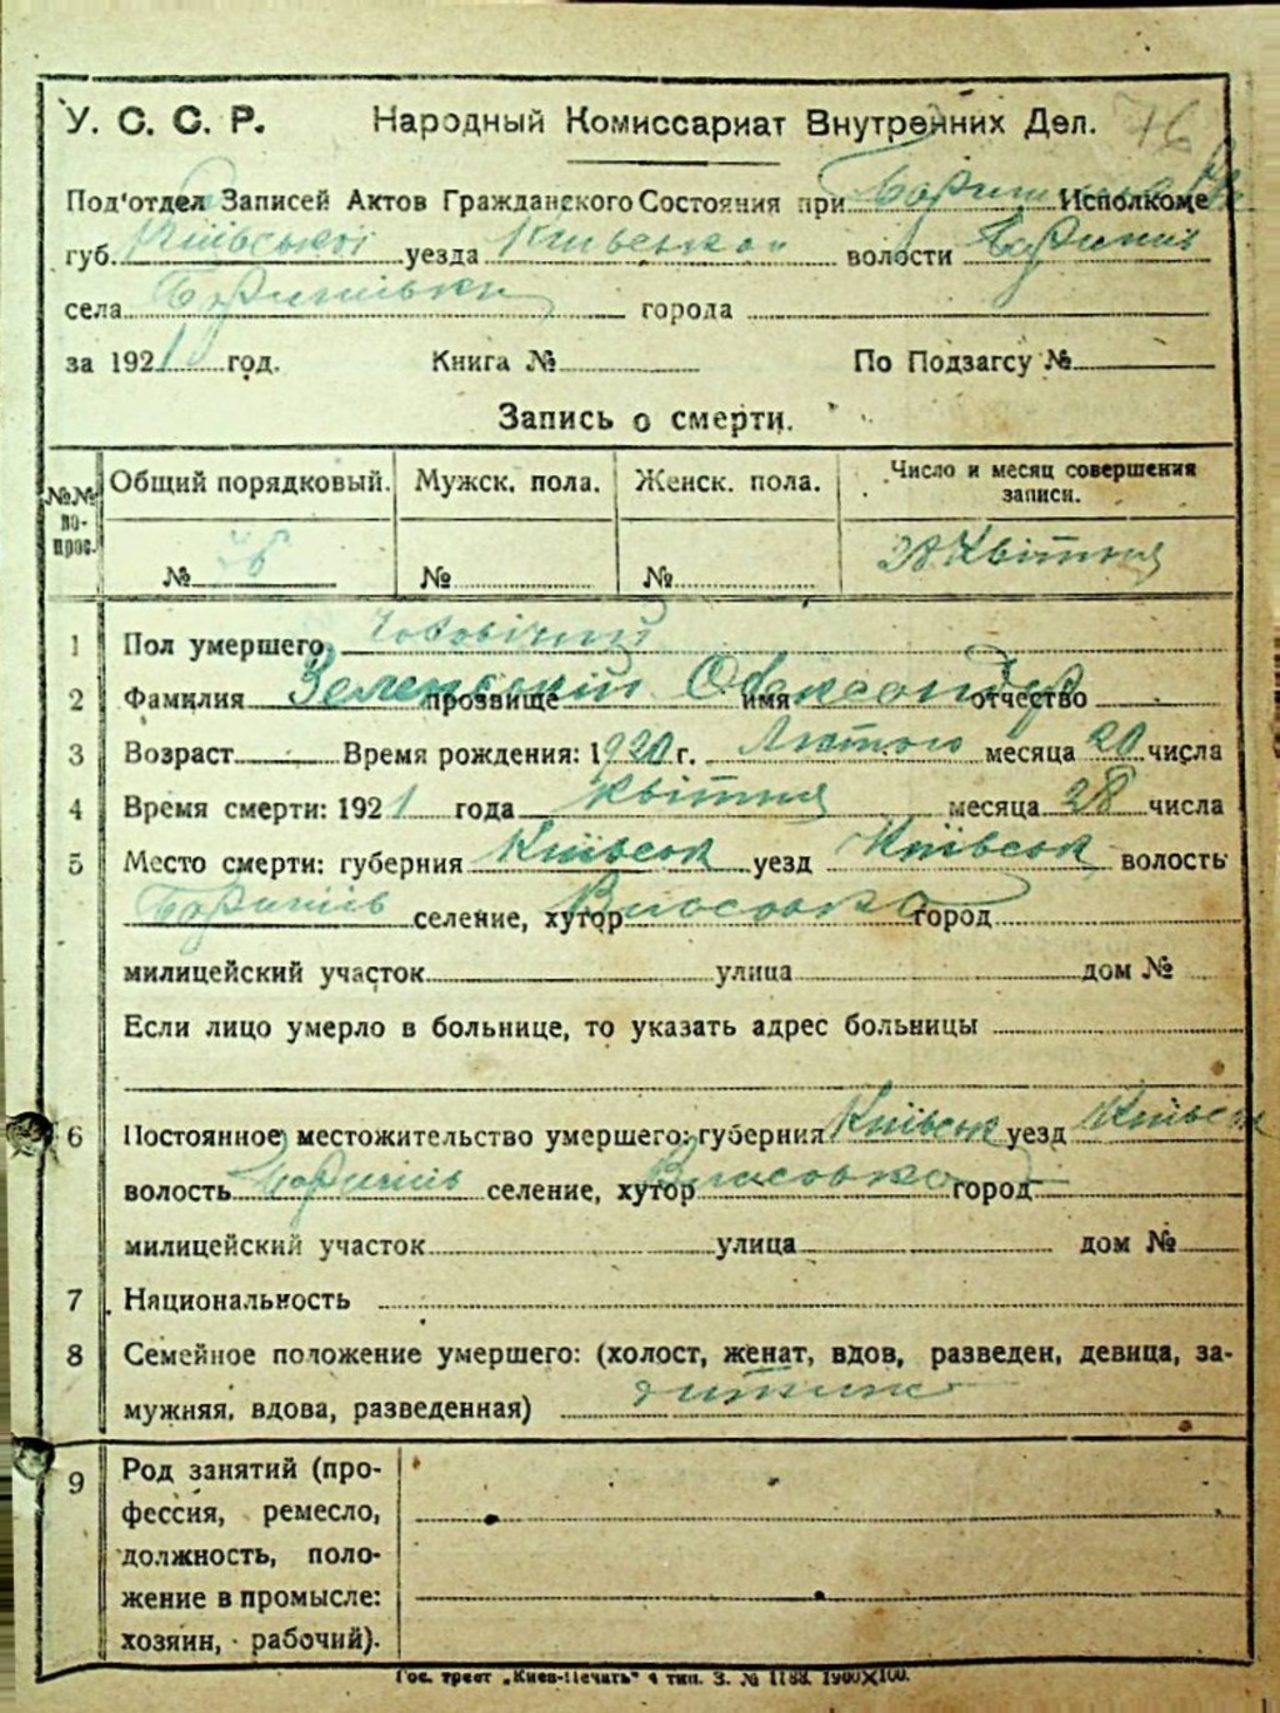 У. С. С. Р. Народный Комиссариат Внутренних Дел. 76
Под'отдел Записей Актов Гражданского Состояния при Исполкоме
губ. Київської уезда Київського волости Баришів
села Баришівки города
за 1921 год. Книга № По Подзагсу №
Запись о смерти.
№№ во-прос. Общий порядковый. Мужск. пола. Женск. пола. Число и месяц совершения записи.
№ № № Квітня
1 Пол умершего Чоловічий
2 Фамилия Зеленський прозвище имя Олександер отчество
3 Возраст Время рождения: 1920 г. Лютого месяца 20 числа
4 Время смерти: 1921 года Квітня месяца 28 числа
5 Место смерти: губерния Київськ уезд Київськ волость
Баришів селение, хутор Власовка город
милицейский участок улица дом №
Если лицо умерло в больнице, то указать адрес больницы
6 Постоянное местожительство умершего: губерния Київськ уезд Київськ
волость Баришів селение, хутор Власовка город
милицейский участок улица дом №
7 Национальность
8 Семейное положение умершего: (холост, женат, вдов, разведен, девица, за-
мужняя, вдова, разведенная) дитина
9 Род занятий (про-
фессия, ремесло,
должность, поло-
жение в промысле:
хозяин, рабочий).
Гос. трест „Киев-Печать" 4 тип. З. № 1188. 1900X100.